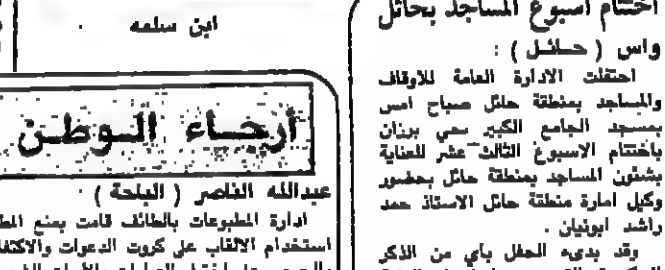 اختتام اسبوع المساجد بحائل
واس ( حـائـل ) :
احتفلت الادارة العامة للاوقاف
والمساجد بمنطقة حائل صباح امس
بمسجد الجامع الكبير بحي برزان
باختتام الاسبوع الثالث عشر للعناية
بشئون المساجد بمنطقة حائل بحضور
وكيل امارة منطقة حائل الاستاذ حمد
راشد ابونيان .
وقد بدىء الحفل بآي من الذكر
ابن سلمه .
أرجـاء الـوطـن
عبدالله الناصر ( الباحة )
ادارة المطبوعات بالطائف قامت بمنع
استخدام الالقاب على كروت الدعوات